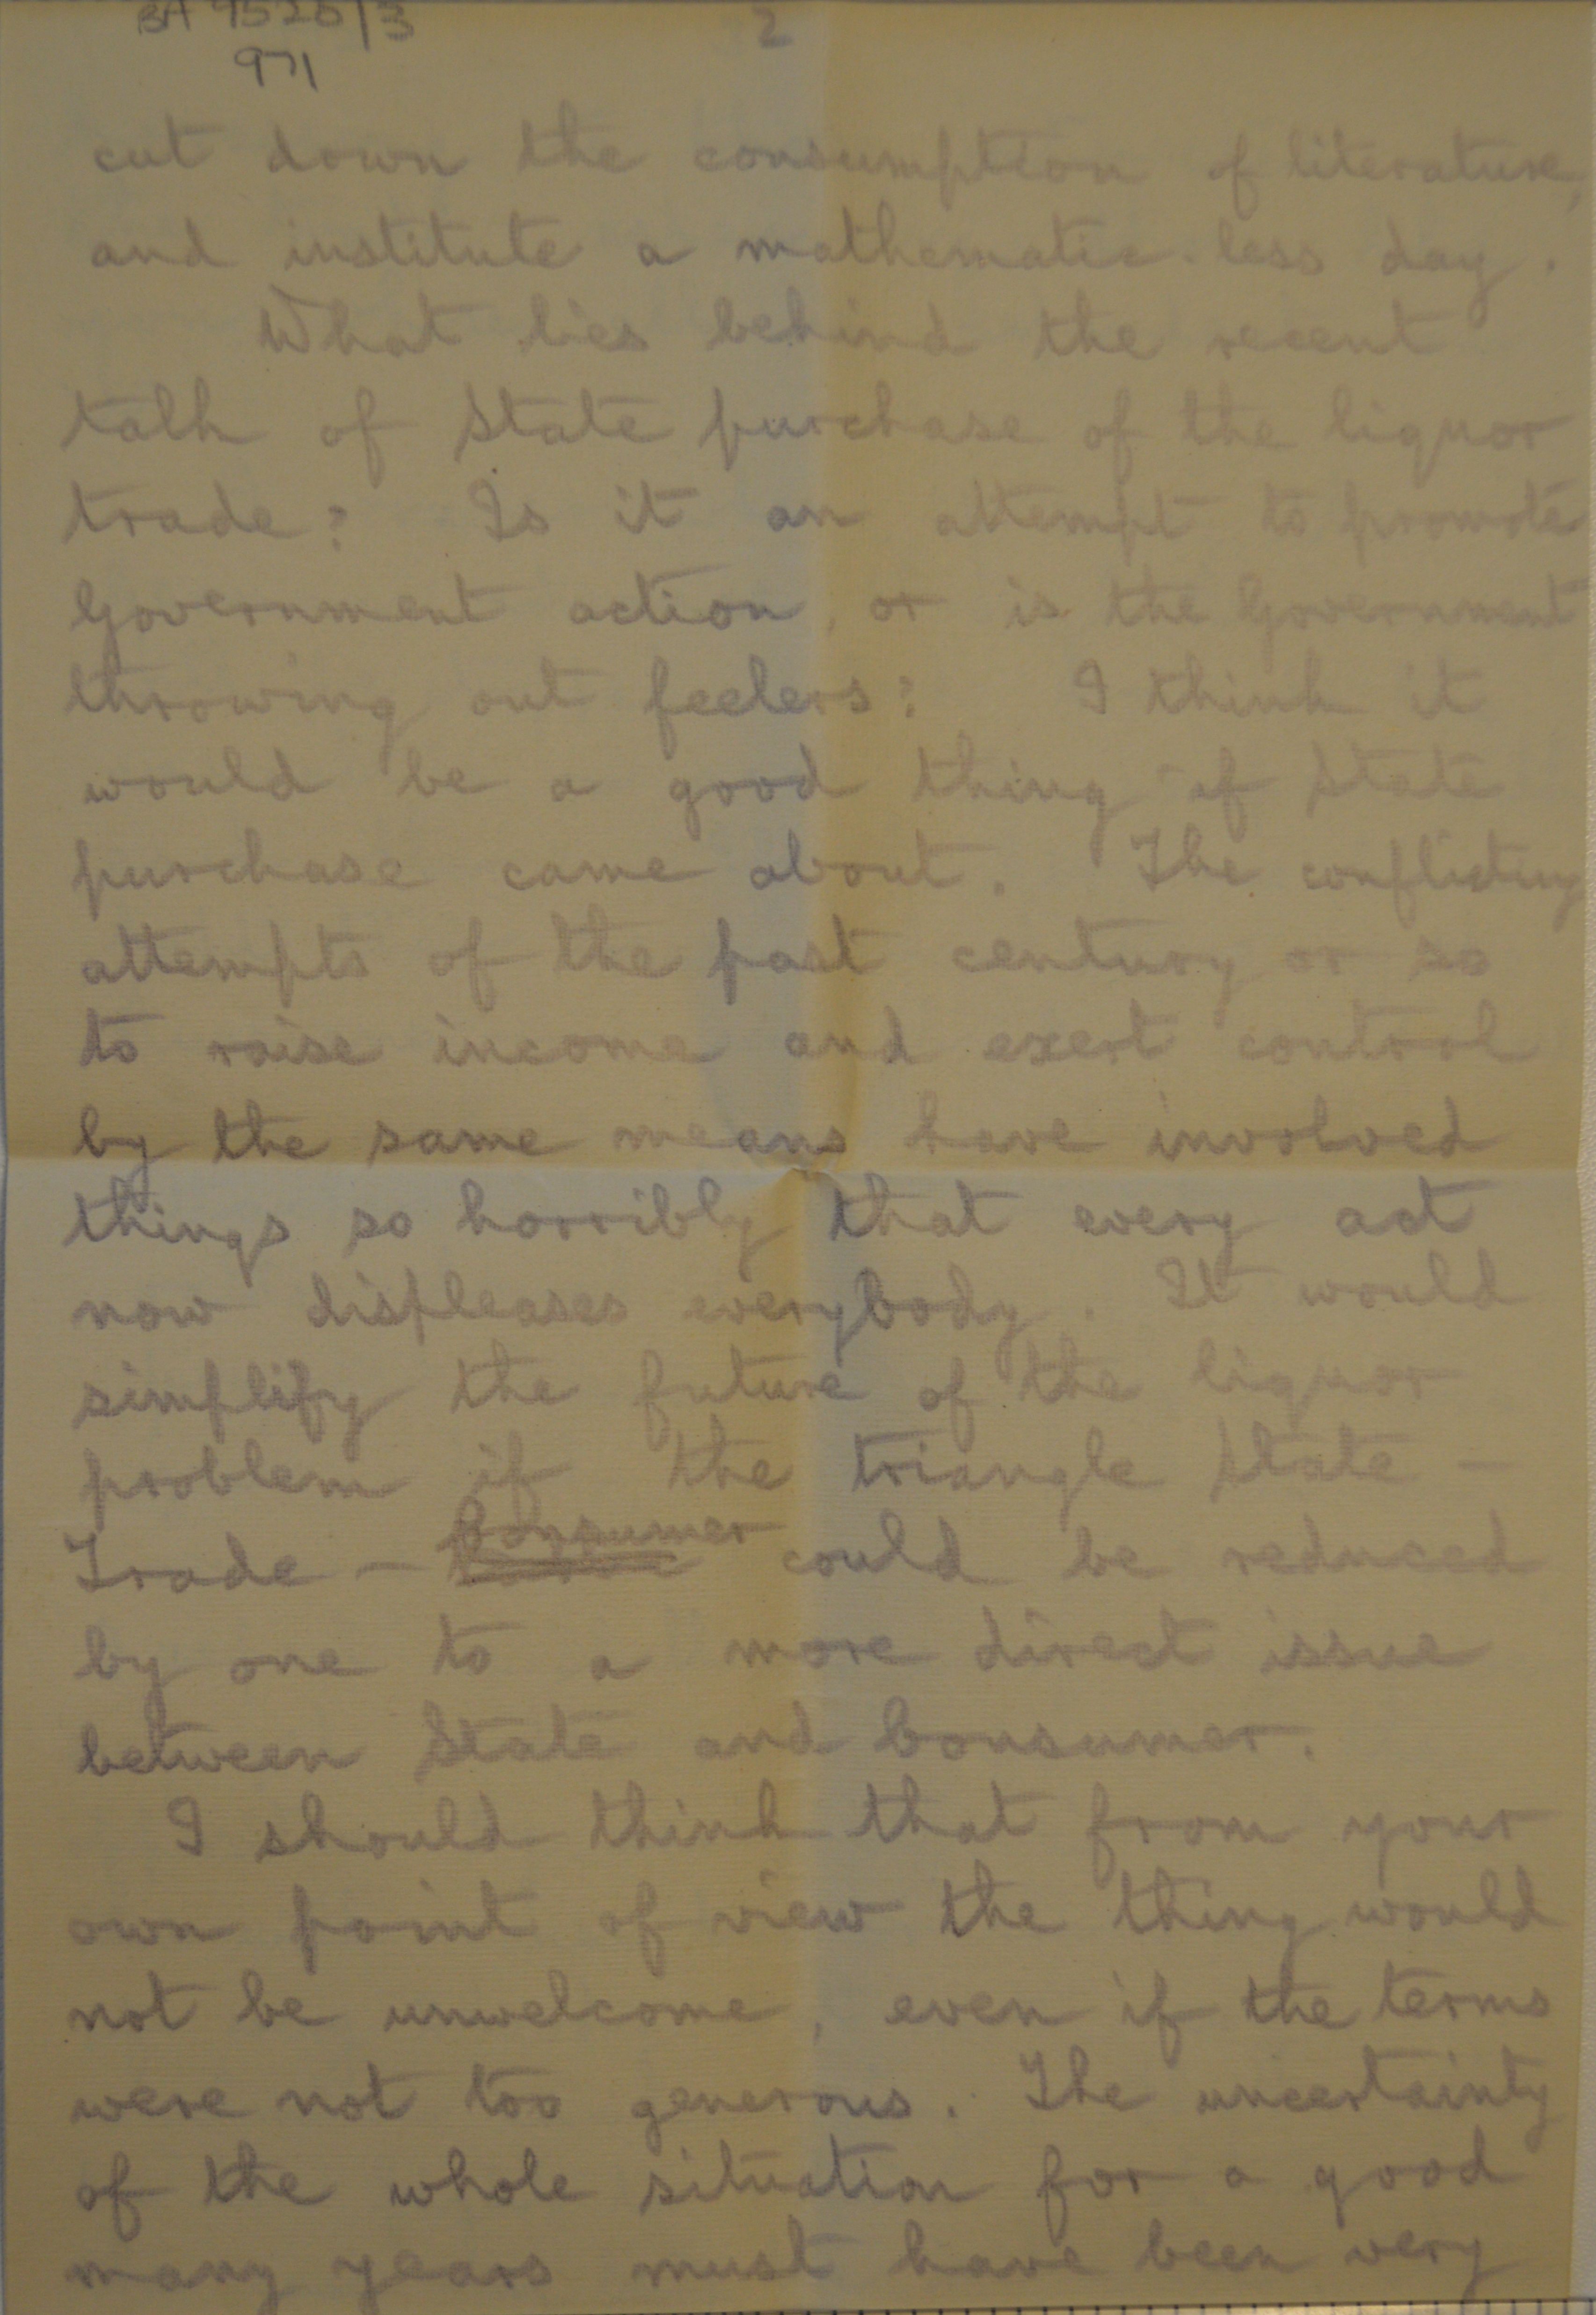 BA 9520/3
971
2
cut down the consumption of literature,
and institute a mathematic-less day.
What lies behind the recent
talk of State purchase of the liquor
trade? Is it an attempt to promote
Government action, or is the Government
throwing out feelers? I think it
would be a good thing if State
purchase came about. The conflicting
attempts of the past century or so
to raise income and exert control
by the same means have involved
things so horribly that every act
now displeases everybody. It would
simplify the future of the liquor
problem if the triangle State —
Trade — Consumer could be reduced
by one to a more direct issue
between State and Consumer.
I should think that from your
own point of view the thing would
not be unwelcome, even if the terms
were not too generous. The uncertainty
of the whole situation for a good
many years must have been very